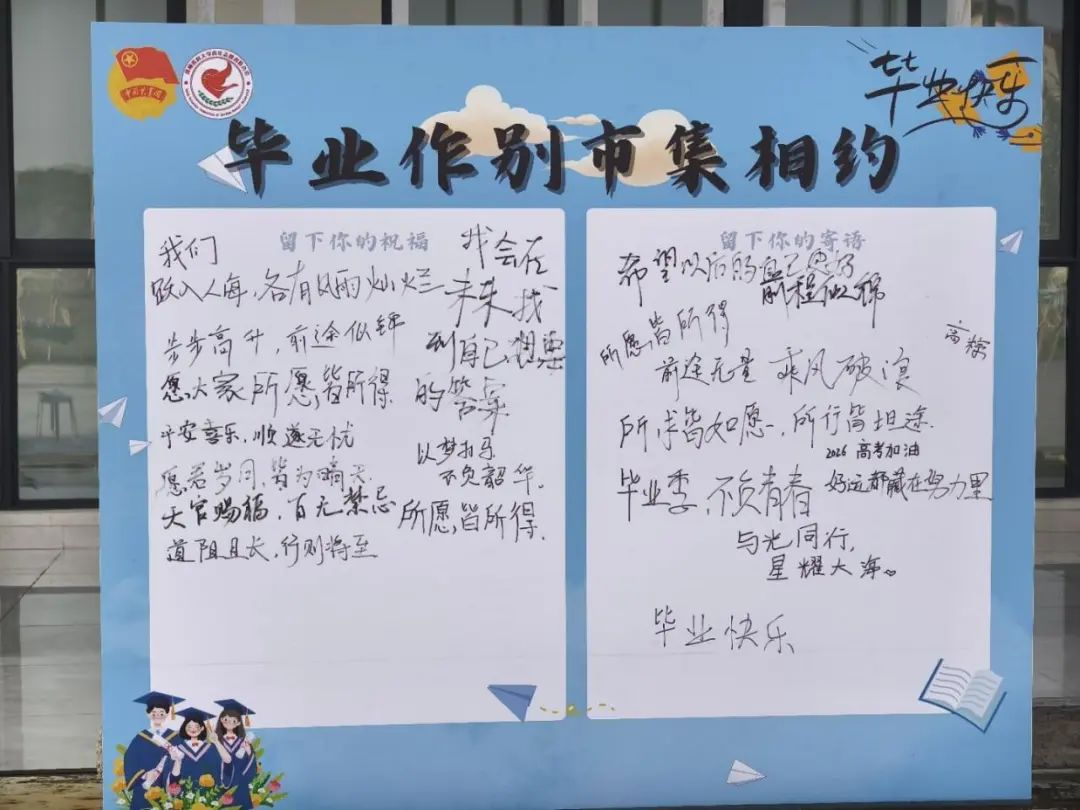 中国共青团
毕业快乐
毕业作别市集相约
留下你的祝福
我们
跌入人海,各有风雨灿烂
步步高升,前途似锦
愿大家所愿皆所得
平安喜乐,顺遂无忧
愿若岁月,皆为晴天
天官赐福,百无禁忌
道阻且长,行则将至
我会在
未来找
到自己想要
的答案
以梦为马
不负韶华.
所愿皆所得.
留下你的寄语
希望以后的自己更好
前程似锦
所愿皆所得
前途无量 乘风破浪
所求皆如愿,所行皆坦途.
2026 高考加油
毕业季,不负青春
好运都藏在努力里
与光同行,
星耀大海。
毕业快乐